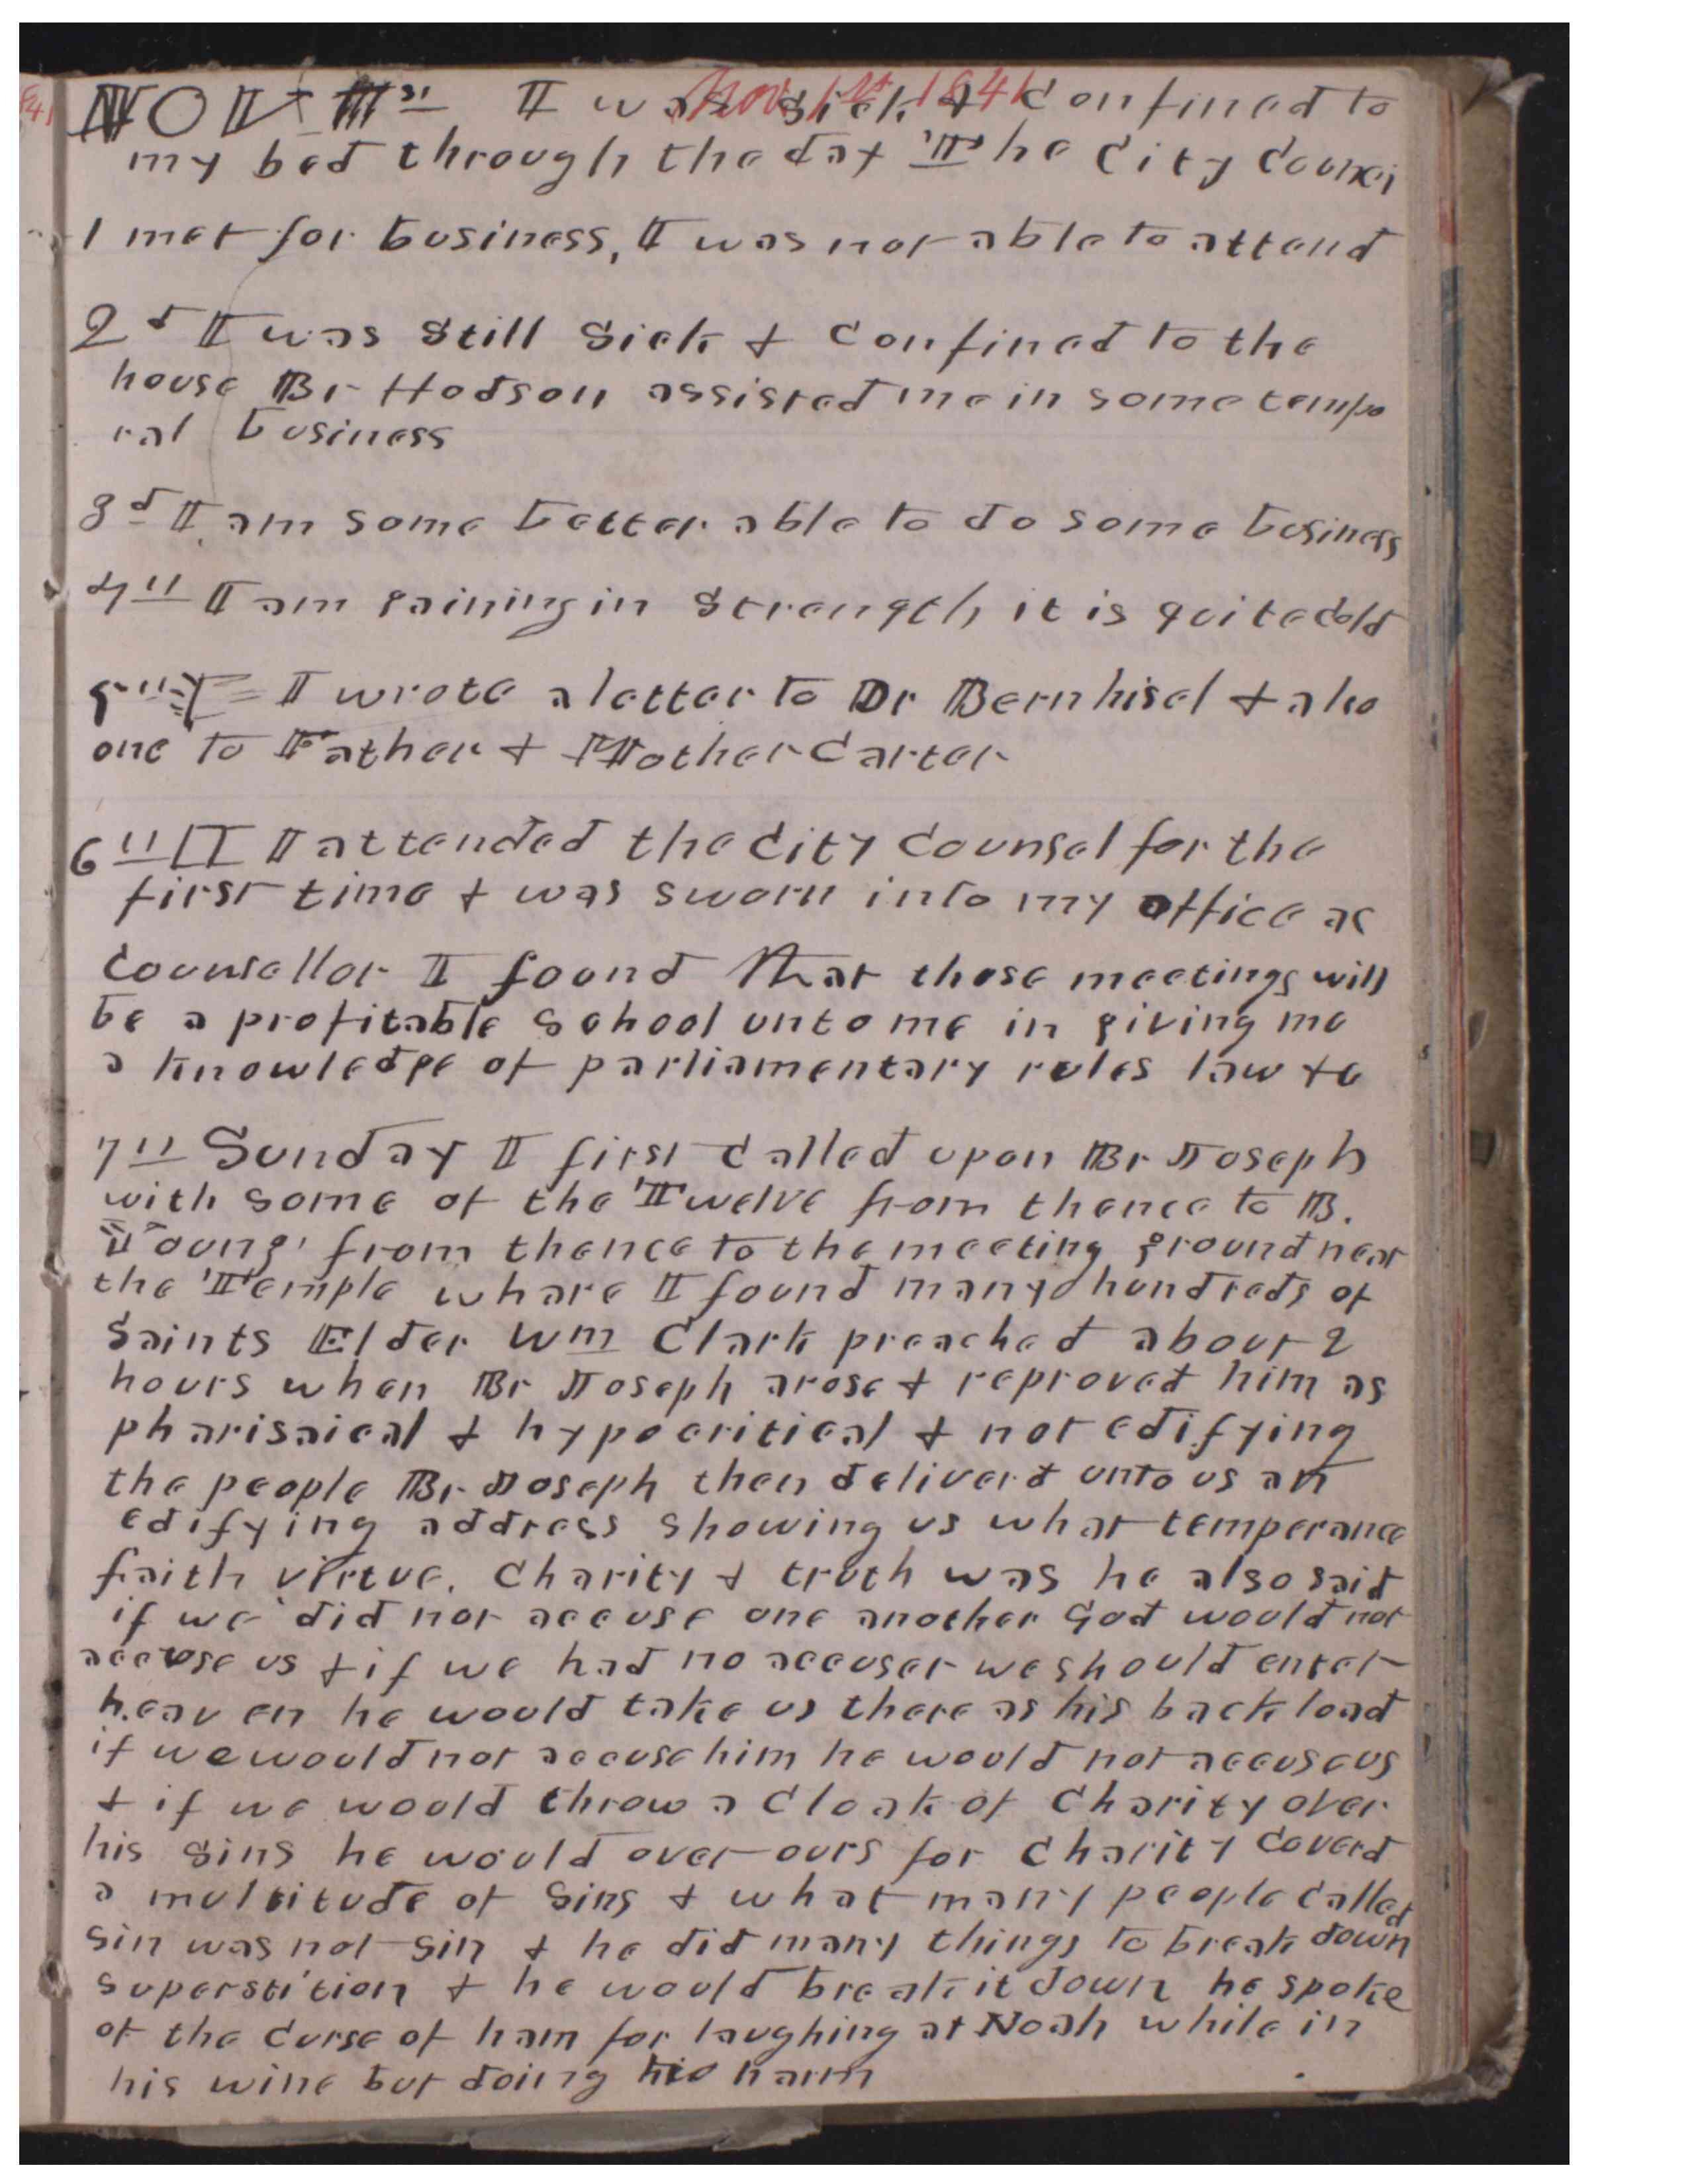 Nov 1st I was sick & Confined to
Nov 1st 1841
my bed through the day The City Counci
l met for business, I was not able to attend
2d I was Still Sick & Confined to the
house Br Hodson assisted me in some tempo
ral business
3d I am some better able to do some business
4th I am gaining in Strength it is quite Cold
5th I wrote a letter to Dr Bernhisel & also
one to Father & Mother Carter
6th I attended the City Counsel for the
first time & was sworn into my office as
Counsellor I found that those meetings will
be a profitable School unto me in giving me
a knowledge of parliamentary rules law &c
7th Sunday I first Called upon Br Joseph
with some of the Twelve from thence to B.
Young from thence to the meeting ground near
the Temple whare I found many hundreds of
Saints Elder Wm Clark preached about 2
hours when Br Joseph arose & reproved him as
pharisaical & hypocritical & not edifying
the people Br Joseph then deliverd unto us an
edifying address showing us what temperance
faith virtue. Charity & truth was he also said
if we did not accuse one another God would not
accuse us & if we had no accuser we should enter
heaven he would take us there as his back load
if we would not accuse him he would not accuse us
& if we would throw a Cloak of Charity over
his sins he would over ours for Charity Coverd
a multitude of Sins & what many people Called
sin was not sin & he did many things to break down
superstition & he would break it down he spoke
of the Curse of ham for laughing at Noah while in
his wine but doing no harm